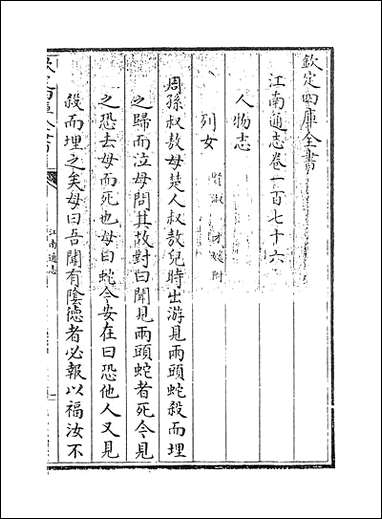 欽定四庫全書
江南通志卷一百七十六
人物志
列女
賢淑 才媛附
周孫叔敖母楚人叔敖兒時出游見兩頭蛇殺而埋
之歸而泣母問其故對曰聞見兩頭蛇者死今見
之恐去母而死也母曰蛇今安在曰恐他人又見
殺而埋之矣母曰吾聞有陰德者必報以福汝不
江南通志